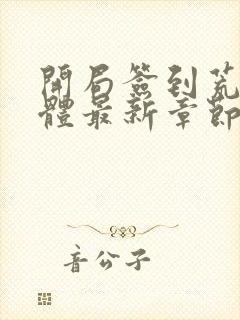 開局簽到荒
體最新章節
音公子